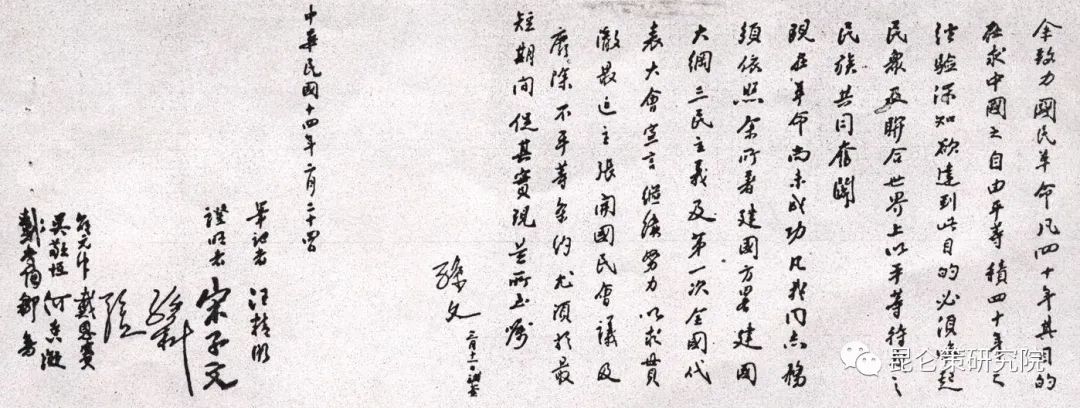 余致力國民革命凡四十年其目的
在求中國之自由平等積四十年之
經驗深知欲達到此目的必須喚起
民衆及聯合世界上以平等待我之
民族共同奮鬭
現在革命尚未成功凡我同志務
須依照余所著建國方畧建國
大綱三民主義及第一次全國代
表大會宣言繼續努力以求貫
澈最近主張開國民會議及
廢除不平等条約尤須於最
短期間促其實現是所至囑
孫文
三月十一日補簽
中華民國十四年二月二十四日
筆記者 汪精衛
證明者 宋子文
孫科
邵元冲 戴恩賽
吳敬恒 何香凝
鄒魯
昆仑策研究院